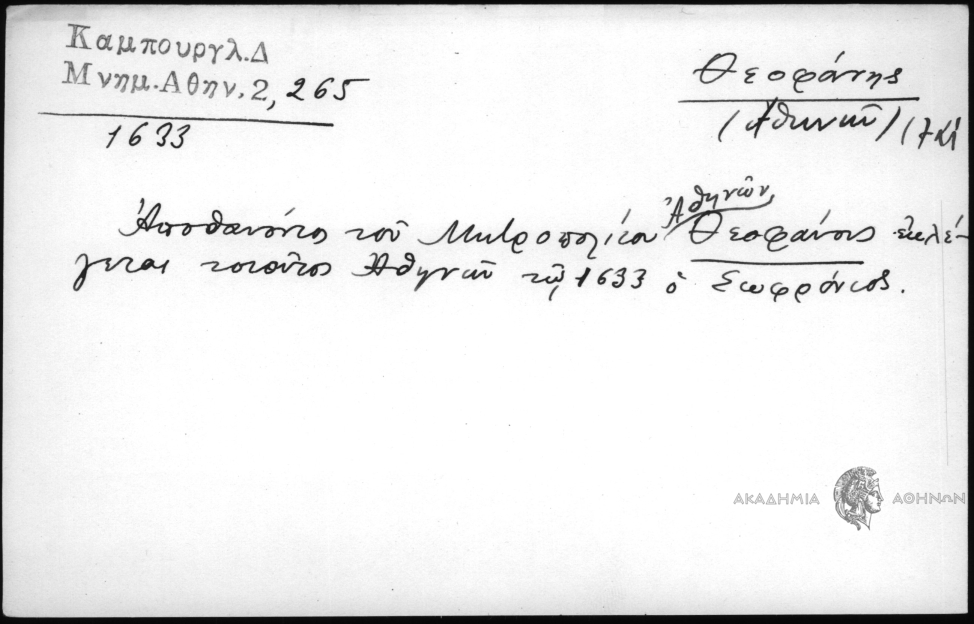 Καμπουργλ.Δ
Μνημ.Αθην.2, 265
1633
Θεοφάνης
(Ἀθηνῶν) (17
Ἀποθανόντος τοῦ Μητροπολίτου Ἀθηνῶν Θεοφάνους ἐκλέ-
γεται τοιοῦτος Ἀθηνῶν τῷ 1633 ὁ Σωφρόνιος.
ΑΚΑΔΗΜΙΑ ΑΘΗΝΩΝ